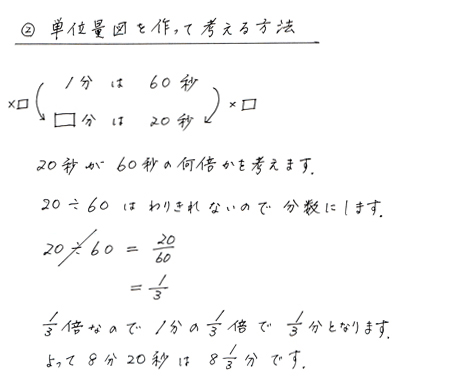 ② 単位量図を作って考える方法
1分 は 60秒
×□ ×□
□分 は 20秒
20秒が 60秒の何倍かを考えます.
20÷60 はわりきれないので 分数にします.
20÷60 = 20/60
= 1/3
1/3倍なので 1分の 1/3倍で 1/3分となります.
よって 8分20秒は 8 1/3分です.